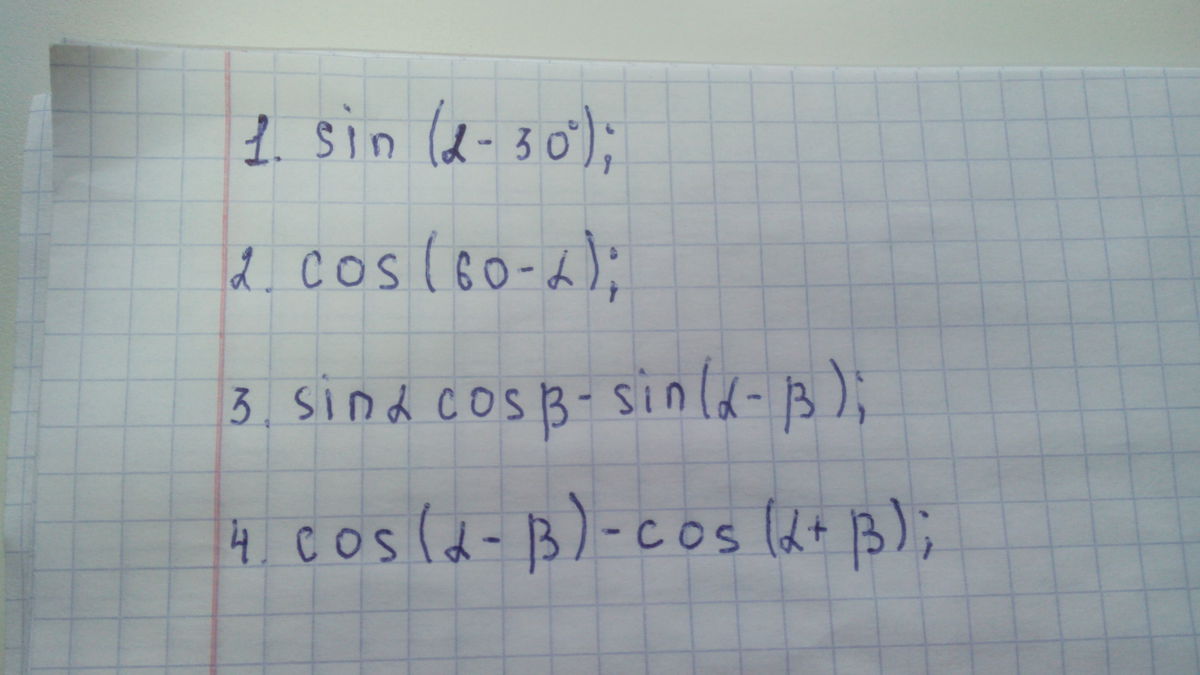 1. sin (α - 30°);
2. cos (60 - α);
3. sin α cos β - sin (α - β);
4. cos (α - β) - cos (α + β);